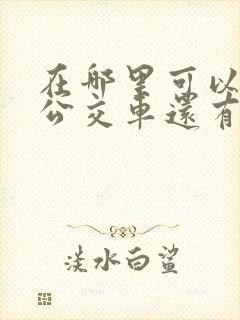 在哪里可以
公交車還有
淡水白鯊